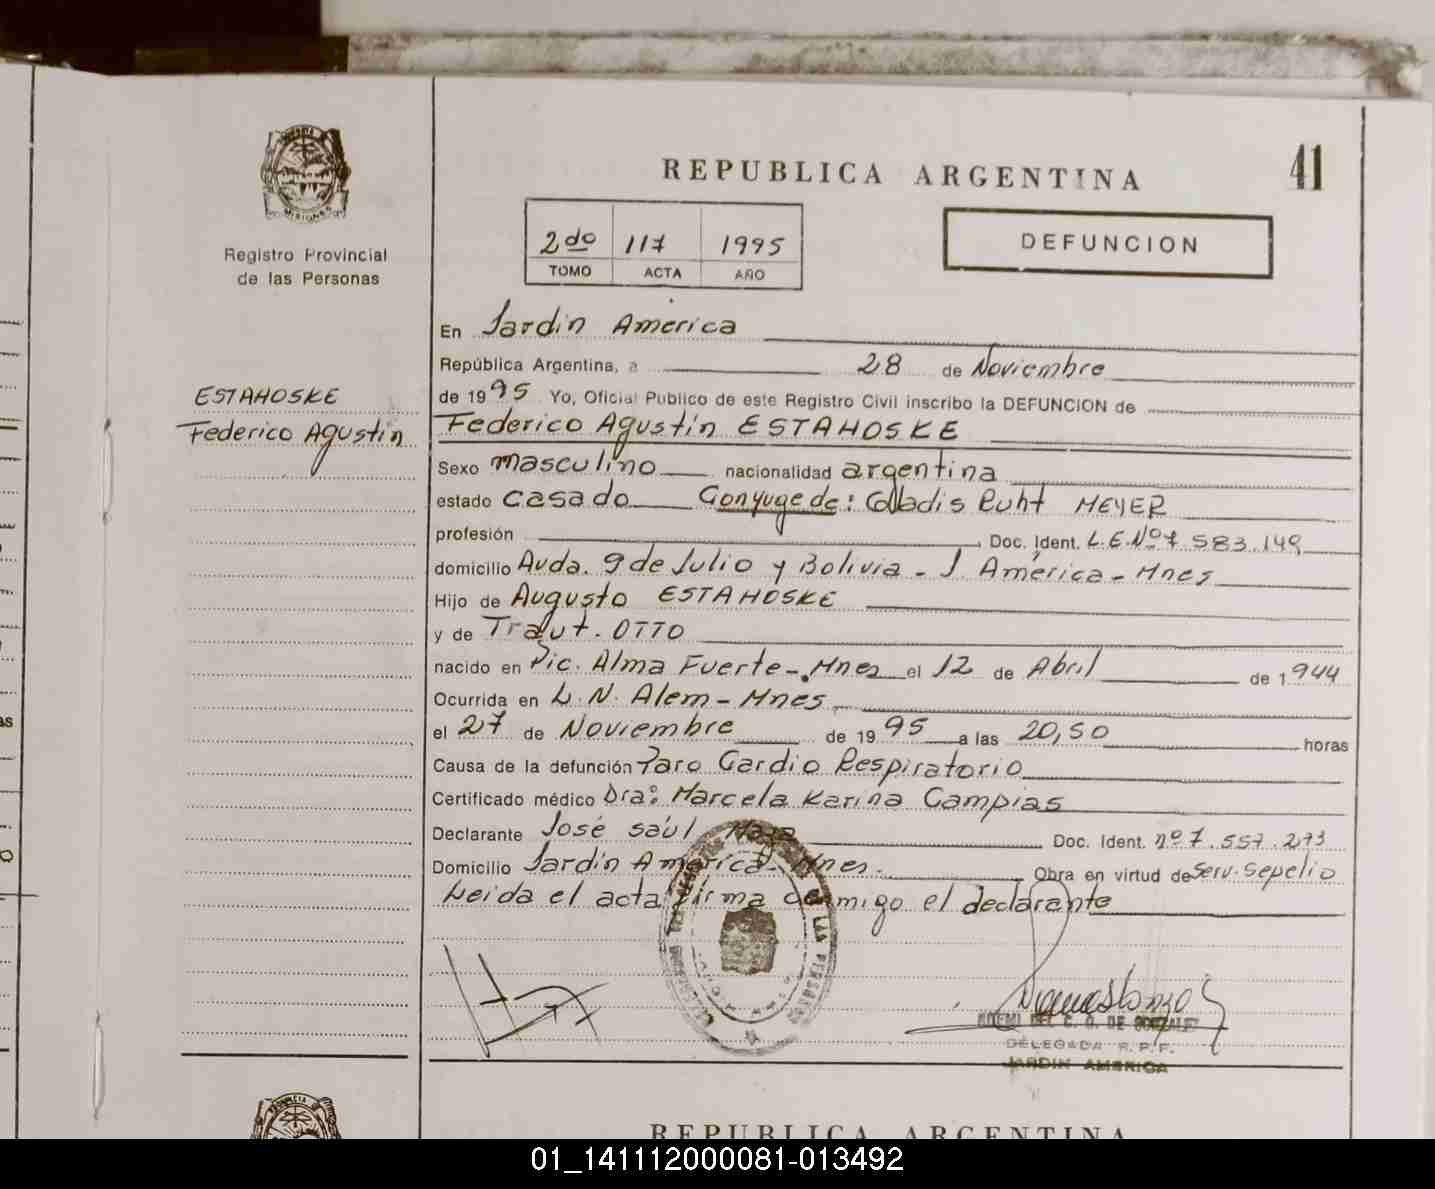 MISIONES
Registro Provincial
de las Personas
ESTAHOSKE
Federico Agustín
REPUBLICA ARGENTINA
41
2do 117 1995
TOMO ACTA AÑO
DEFUNCION
En Jardin America
República Argentina, a 28 de Noviembre
de 1995 Yo, Oficial Publico de este Registro Civil inscribo la DEFUNCION de
Federico Agustín ESTAHOSKE
Sexo masculino nacionalidad argentina
estado casado Conyuge de: Gladis Ruht MEYER
profesión Doc. Ident. L.E.Nº 7.583.149
domicilio Avda. 9 de Julio y Bolivia - J. América - Mnes
Hijo de Augusto ESTAHOSKE
y de Traut. OTTO
nacido en Pic. Alma Fuerte - Mnes el 12 de Abril de 1944
Ocurrida en L. N. Alem - Mnes
el 27 de Noviembre de 1995 a las 20,50 horas
Causa de la defunción Paro Cardio Respiratorio
Certificado médico Dra: Marcela Karina Campias
Declarante José saúl Doc. Ident. nº 7.557.273
Domicilio Jardín América - Mnes. Obra en virtud de Serv. Sepelio
Leida el acta firma conmigo el declarante
DE GONZALEZ
DELEGADA R. P. P.
JARDIN AMERICA
REPUBLICA ARGENTINA
01_141112000081-013492